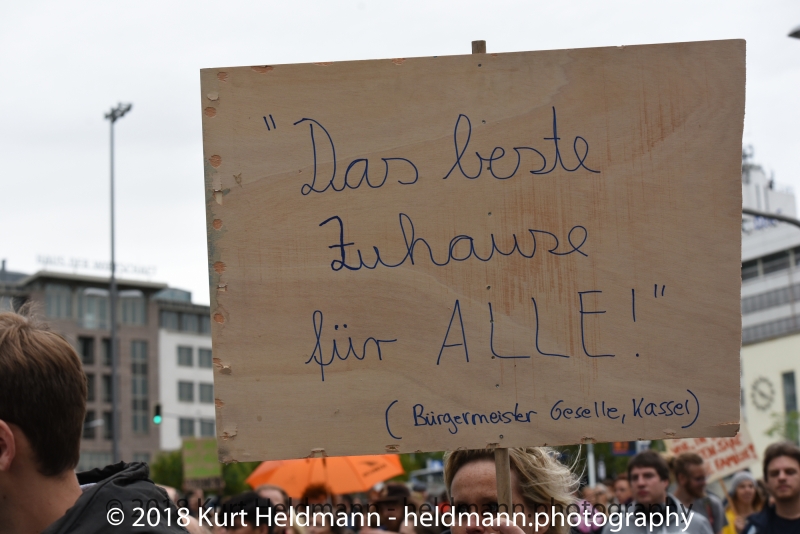 "Das beste
Zuhause
für ALLE!"
(Bürgermeister Geselle, Kassel)
© 2018 Kurt Heldmann - heldmann.photography